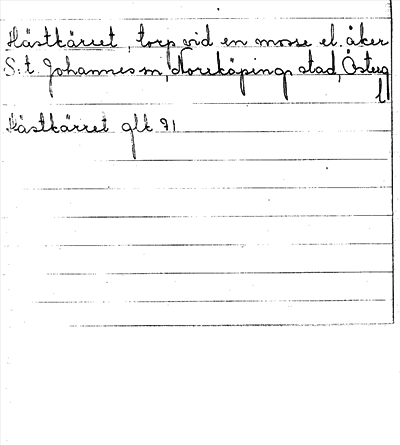 Hästkärret, torp vid en mosse el. åker
S:t Johannes sn, Norrköpings stad, Östergl
Hästkärret glk 71